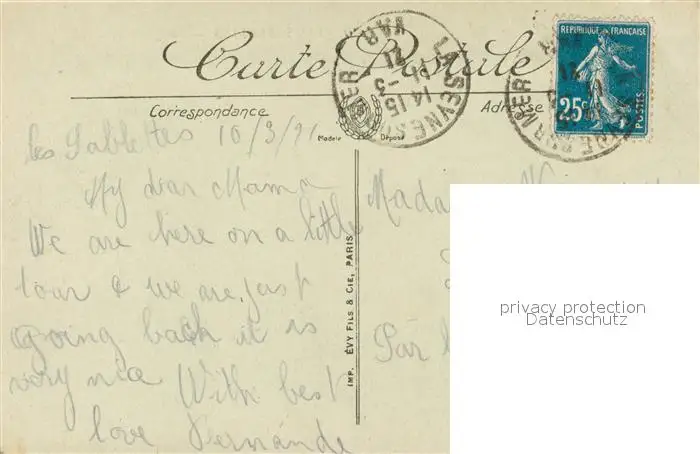 Carte Postale
Correspondance
Adresse
Modèle Déposé
RÉPUBLIQUE FRANÇAISE
25c
POSTES
LA SEYNE SUR MER
VAR
14 15
10 -3
21
les Sablettes 10/3/21
My dear Mama
We are here on a little
tour & we are just
going back it is
very nice With best
love Fernande
IMP. ÉVY FILS & CIE, PARIS
Madame
Par
privacy protection
Datenschutz